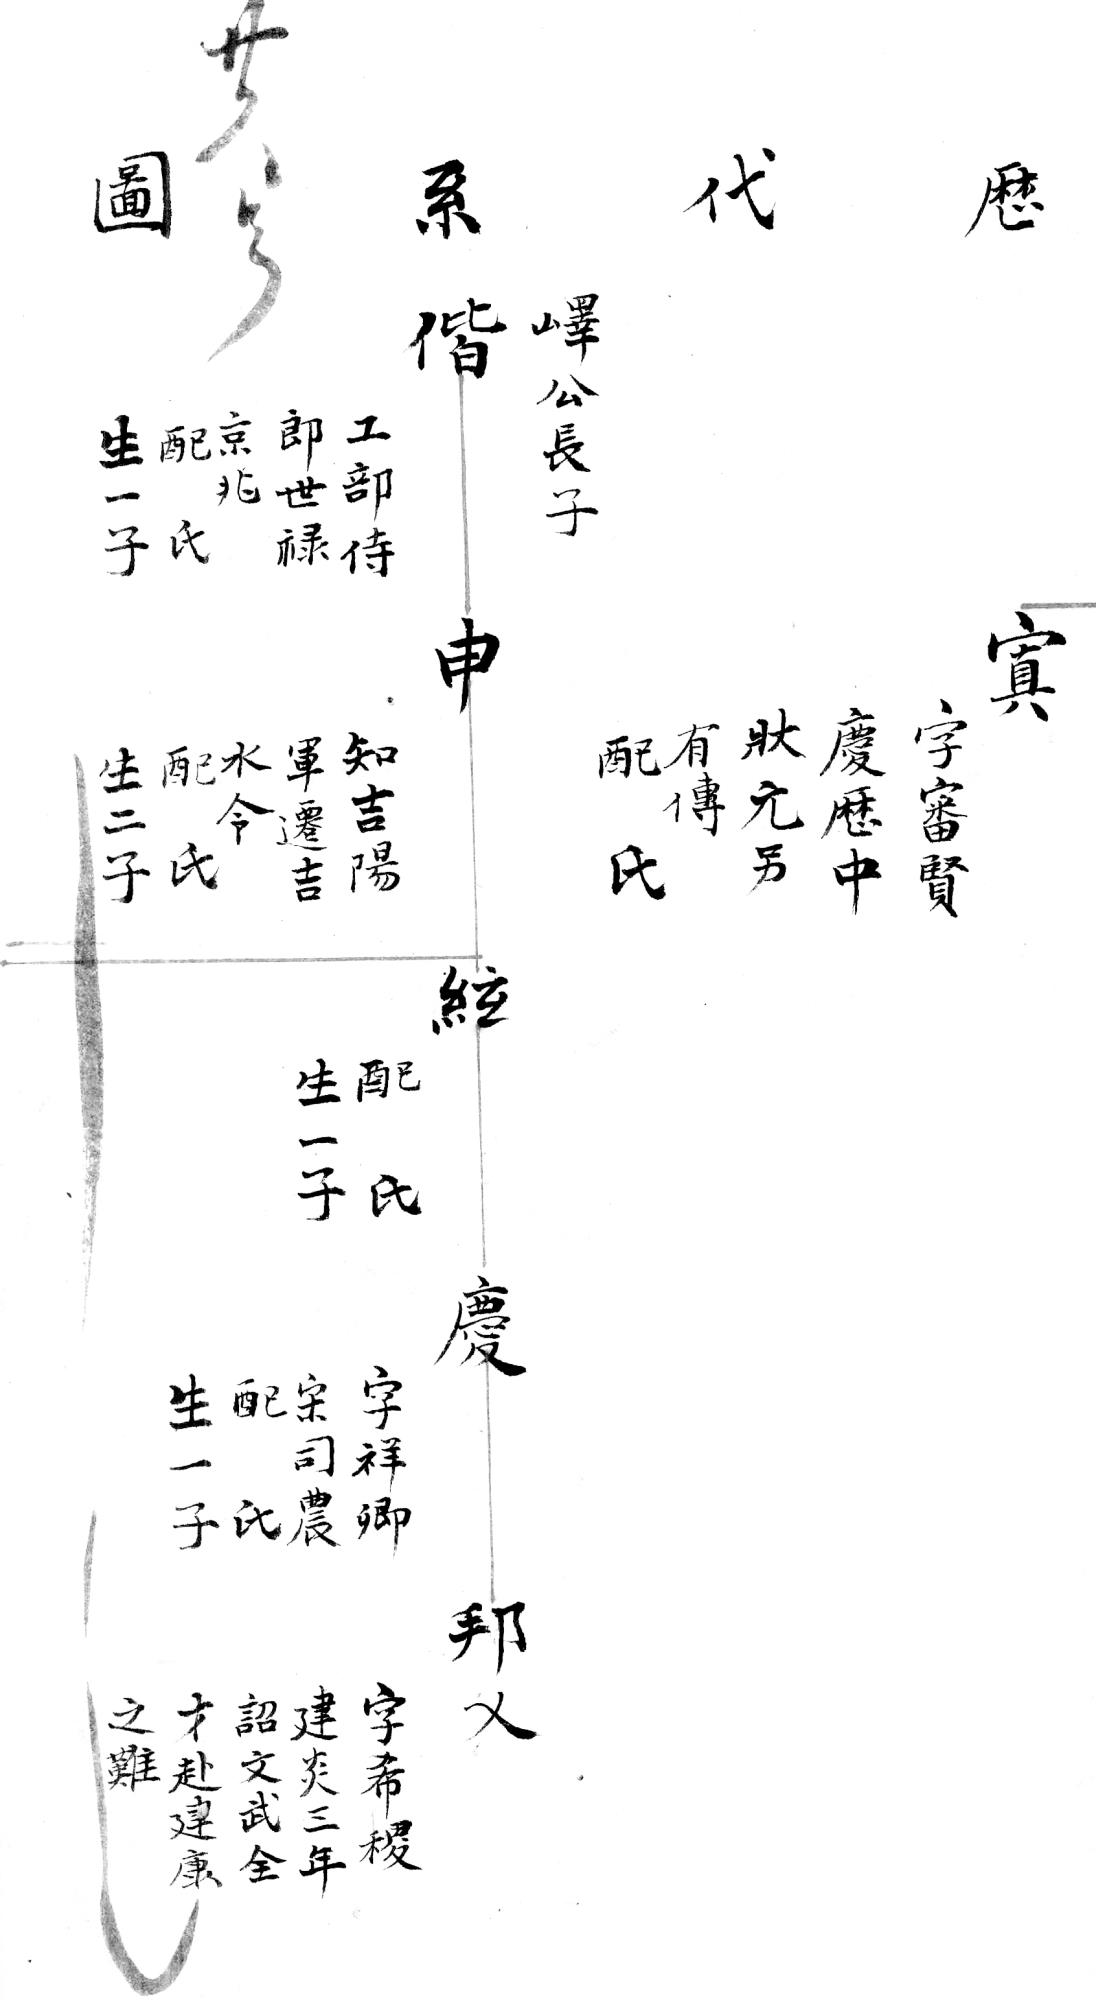 歷代系圖
寘
字審賢
慶歷中
狀元另
有傳
配 氏
嶧公長子
偕
工部侍
郎世祿
京兆
配 氏
生一子
申
知吉陽
軍遷吉
水令
配 氏
生二子
絃
配 氏
生一子
慶
字祥卿
宋司農
配 氏
生一子
邦乂
字希稷
建炎三年
詔文武全
才赴建康
之難